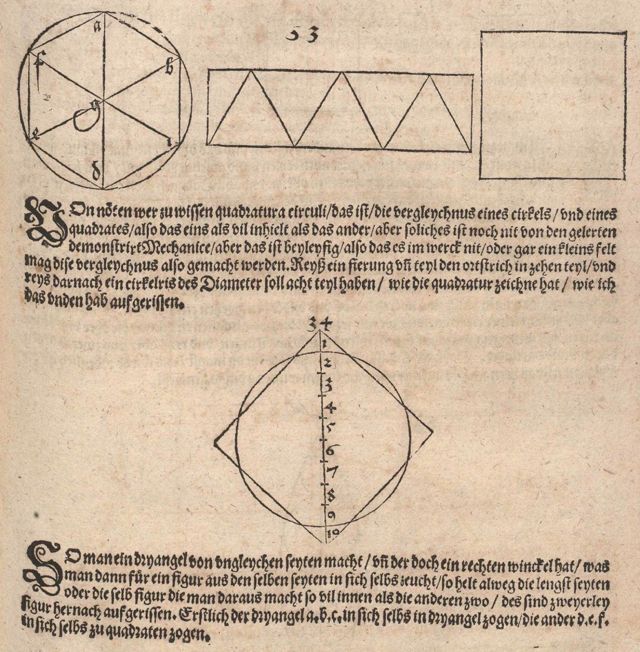 33
a
f
b
g
e
c
d
Von nöten wer zu wissen quadratura circuli/das ist/die vergleychnus eines cirkels/vnd eines
quadrates/also das eins als vil inhielt als das ander/aber soliches ist noch nit von den gelerten
demonstrirt Mechanice/aber das ist beyleyfig/also das es im werck nit/oder gar ein kleins felt
mag dise vergleychnus also gemacht werden. Reyß ein fierung vñ teyl den ortstrich in zehen teyl/vnd
reys darnach ein cirkelris des Diameter soll acht teyl haben/ wie die quadratur zeichne hat/ wie ich
das vnden hab aufgerissen.
34
1
2
3
4
5
6
7
8
9
10
SO man ein dryangel von vngleychen seyten macht/vñ der doch ein rechten winckel hat/was
man dann für ein figur aus den selben seyten in sich selbs zeucht/so helt alweg die lengst seyten
oder die selb figur die man daraus macht so vil innen als die anderen zwo/des sind zweyerley
figur hernach aufgerissen. Erstlich der dryangel a.b.c. in sich selbs in dryangel zogen/die ander d.e.f.
in sich selbs zu quadraten zogen.